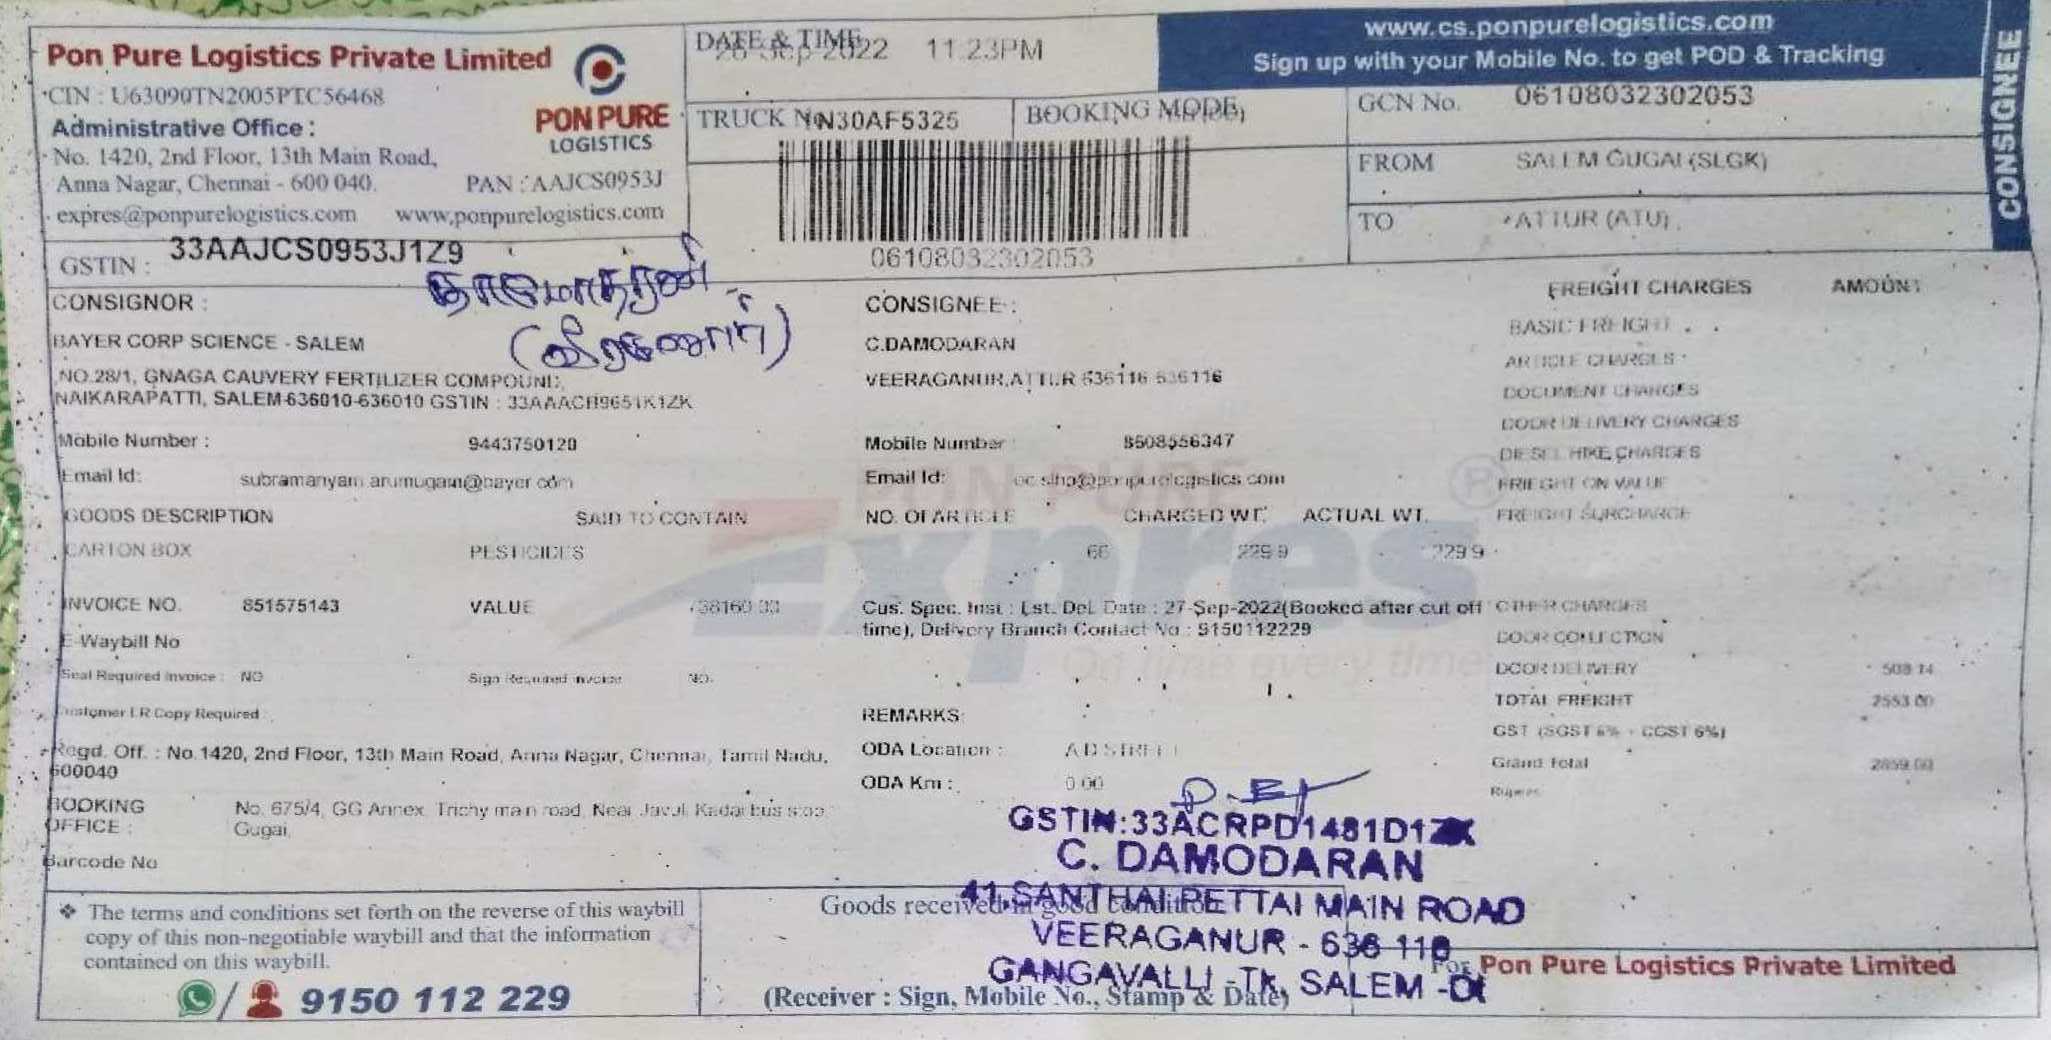 Pon Pure Logistics Private Limited
CIN : U63090TN2005PTC56468
Administrative Office :
No. 1420, 2nd Floor, 13th Main Road,
Anna Nagar, Chennai - 600 040.
PAN : AAJCS0953J
expres@ponpurelogistics.com www.ponpurelogistics.com
PON PURE
LOGISTICS
GSTIN : 33AAJCS0953J1Z9
DATE & TIME
-Sep-2022 11:23PM
www.cs.ponpurelogistics.com
Sign up with your Mobile No. to get POD & Tracking
CONSIGNEE
TRUCK N30AF5325
BOOKING MODE
GCN No. 06108032302053
FROM SALEM GUGAI(SLGK)
TO ATTUR (ATU)
06108032302053
தாமோதரன்
(வீரகனூர்)
CONSIGNOR :
BAYER CORP SCIENCE - SALEM
NO.28/1, GNAGA CAUVERY FERTILIZER COMPOUND,
NAIKARAPATTI, SALEM-636010-636010 GSTIN :
Mobile Number : 9443750120
Email Id: subramanyam.arumugam@bayer.com
CONSIGNEE :
C.DAMODARAN
VEERAGANUR,ATTUR 636116 636116
Mobile Number : 8508556347
Email Id:
GOODS DESCRIPTION SAID TO CONTAIN
NO. OF ARTICLE CHARGED WT. ACTUAL WT.
CARTON BOX PESTICIDES 66 229.9 229.9
INVOICE NO. 851575143 VALUE
Cus. Spec. Inst : Est. Del. Date : 27-Sep-2022(Booked after cut off
time), Delivery Branch Contact No : 9150112229
E-Waybill No
Seal Required Invoice : NO Sign Required Invoice NO
Customer LR Copy Required :
PON PURE
Expres
On time every time
REMARKS:
Regd. Off. : No.1420, 2nd Floor, 13th Main Road, Anna Nagar, Chennai, Tamil Nadu,
600040
ODA Location : A D STREET
ODA Km : 0.00
BOOKING
OFFICE :
No. 675/4, GG Annex, Trichy main road, Near Kadai bus stop
Gugai,
Barcode No
FREIGHT CHARGES AMOUNT
BASIC FREIGHT
ARTICLE CHARGES
DOCUMENT CHARGES
DOOR DELIVERY CHARGES
DIESEL HIKE CHARGES
FRIEGHT ON VALUE
FREIGHT SURCHARGE
OTHER CHARGES
DOOR COLLECTION
DOOR DELIVERY 508.14
TOTAL FREIGHT 2553.00
GST (SGST 6% + CGST 6%)
Grand Total 2859.00
Rupees
GSTIN:33ACRPD1481D1
C. DAMODARAN
41, SANTHAI PETTAI MAIN ROAD
VEERAGANUR - 636 116
GANGAVALLI -Tk, SALEM -Dt
❖ The terms and conditions set forth on the reverse of this waybill
copy of this non-negotiable waybill and that the information
contained on this waybill.
9150 112 229
Goods received in good condition
(Receiver : Sign, Mobile No., Stamp & Date)
For Pon Pure Logistics Private Limited